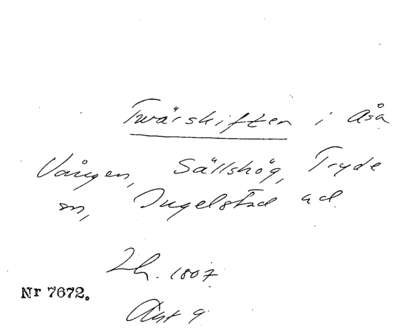 Twärskiften i Åsa
Vången, Sällshög, Tryde
sn, Ingelstad hd
Lh. 1807
Nr 7672.
Akt 9